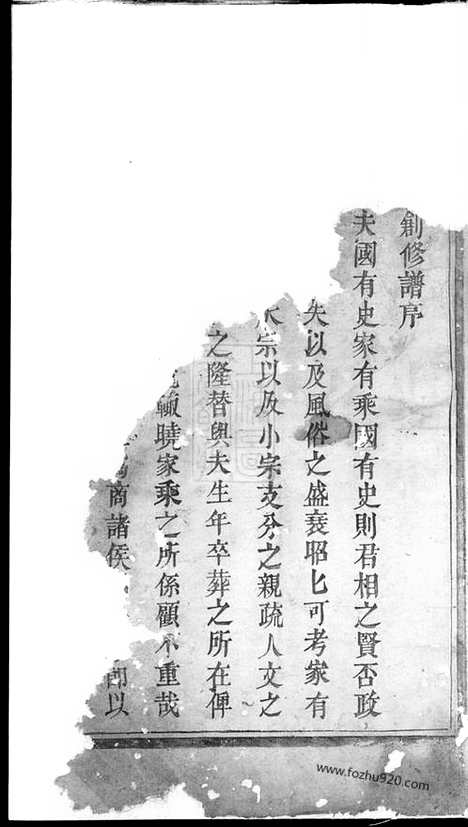 創修譜序
夫國有史家有乘國有史則君相之賢否政
失以及風俗之盛衰昭匕可考家有
宗以及小宗支分之親疏人文之
之隆替與夫生年卒葬之所在俾
輒曉家乘之所係顧不重哉
商諸侯
郎以
www.fozhu920.com